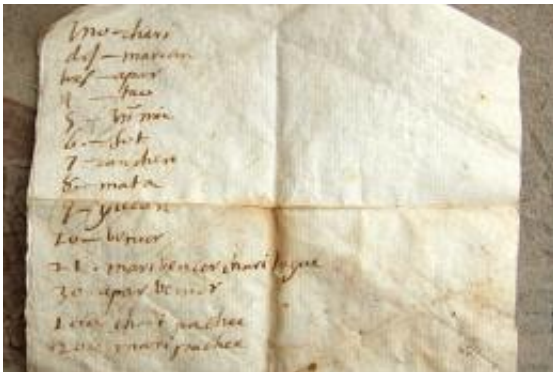 Uno–chari
dos–marian
tres–apar
4 – tau
5 –
6 – sut
7 – canchen
8 – mata
9 – yucan
10 – bencor
21 – maribencor chari
30 – apar bencor
100 chari pachac
200 mari pachac